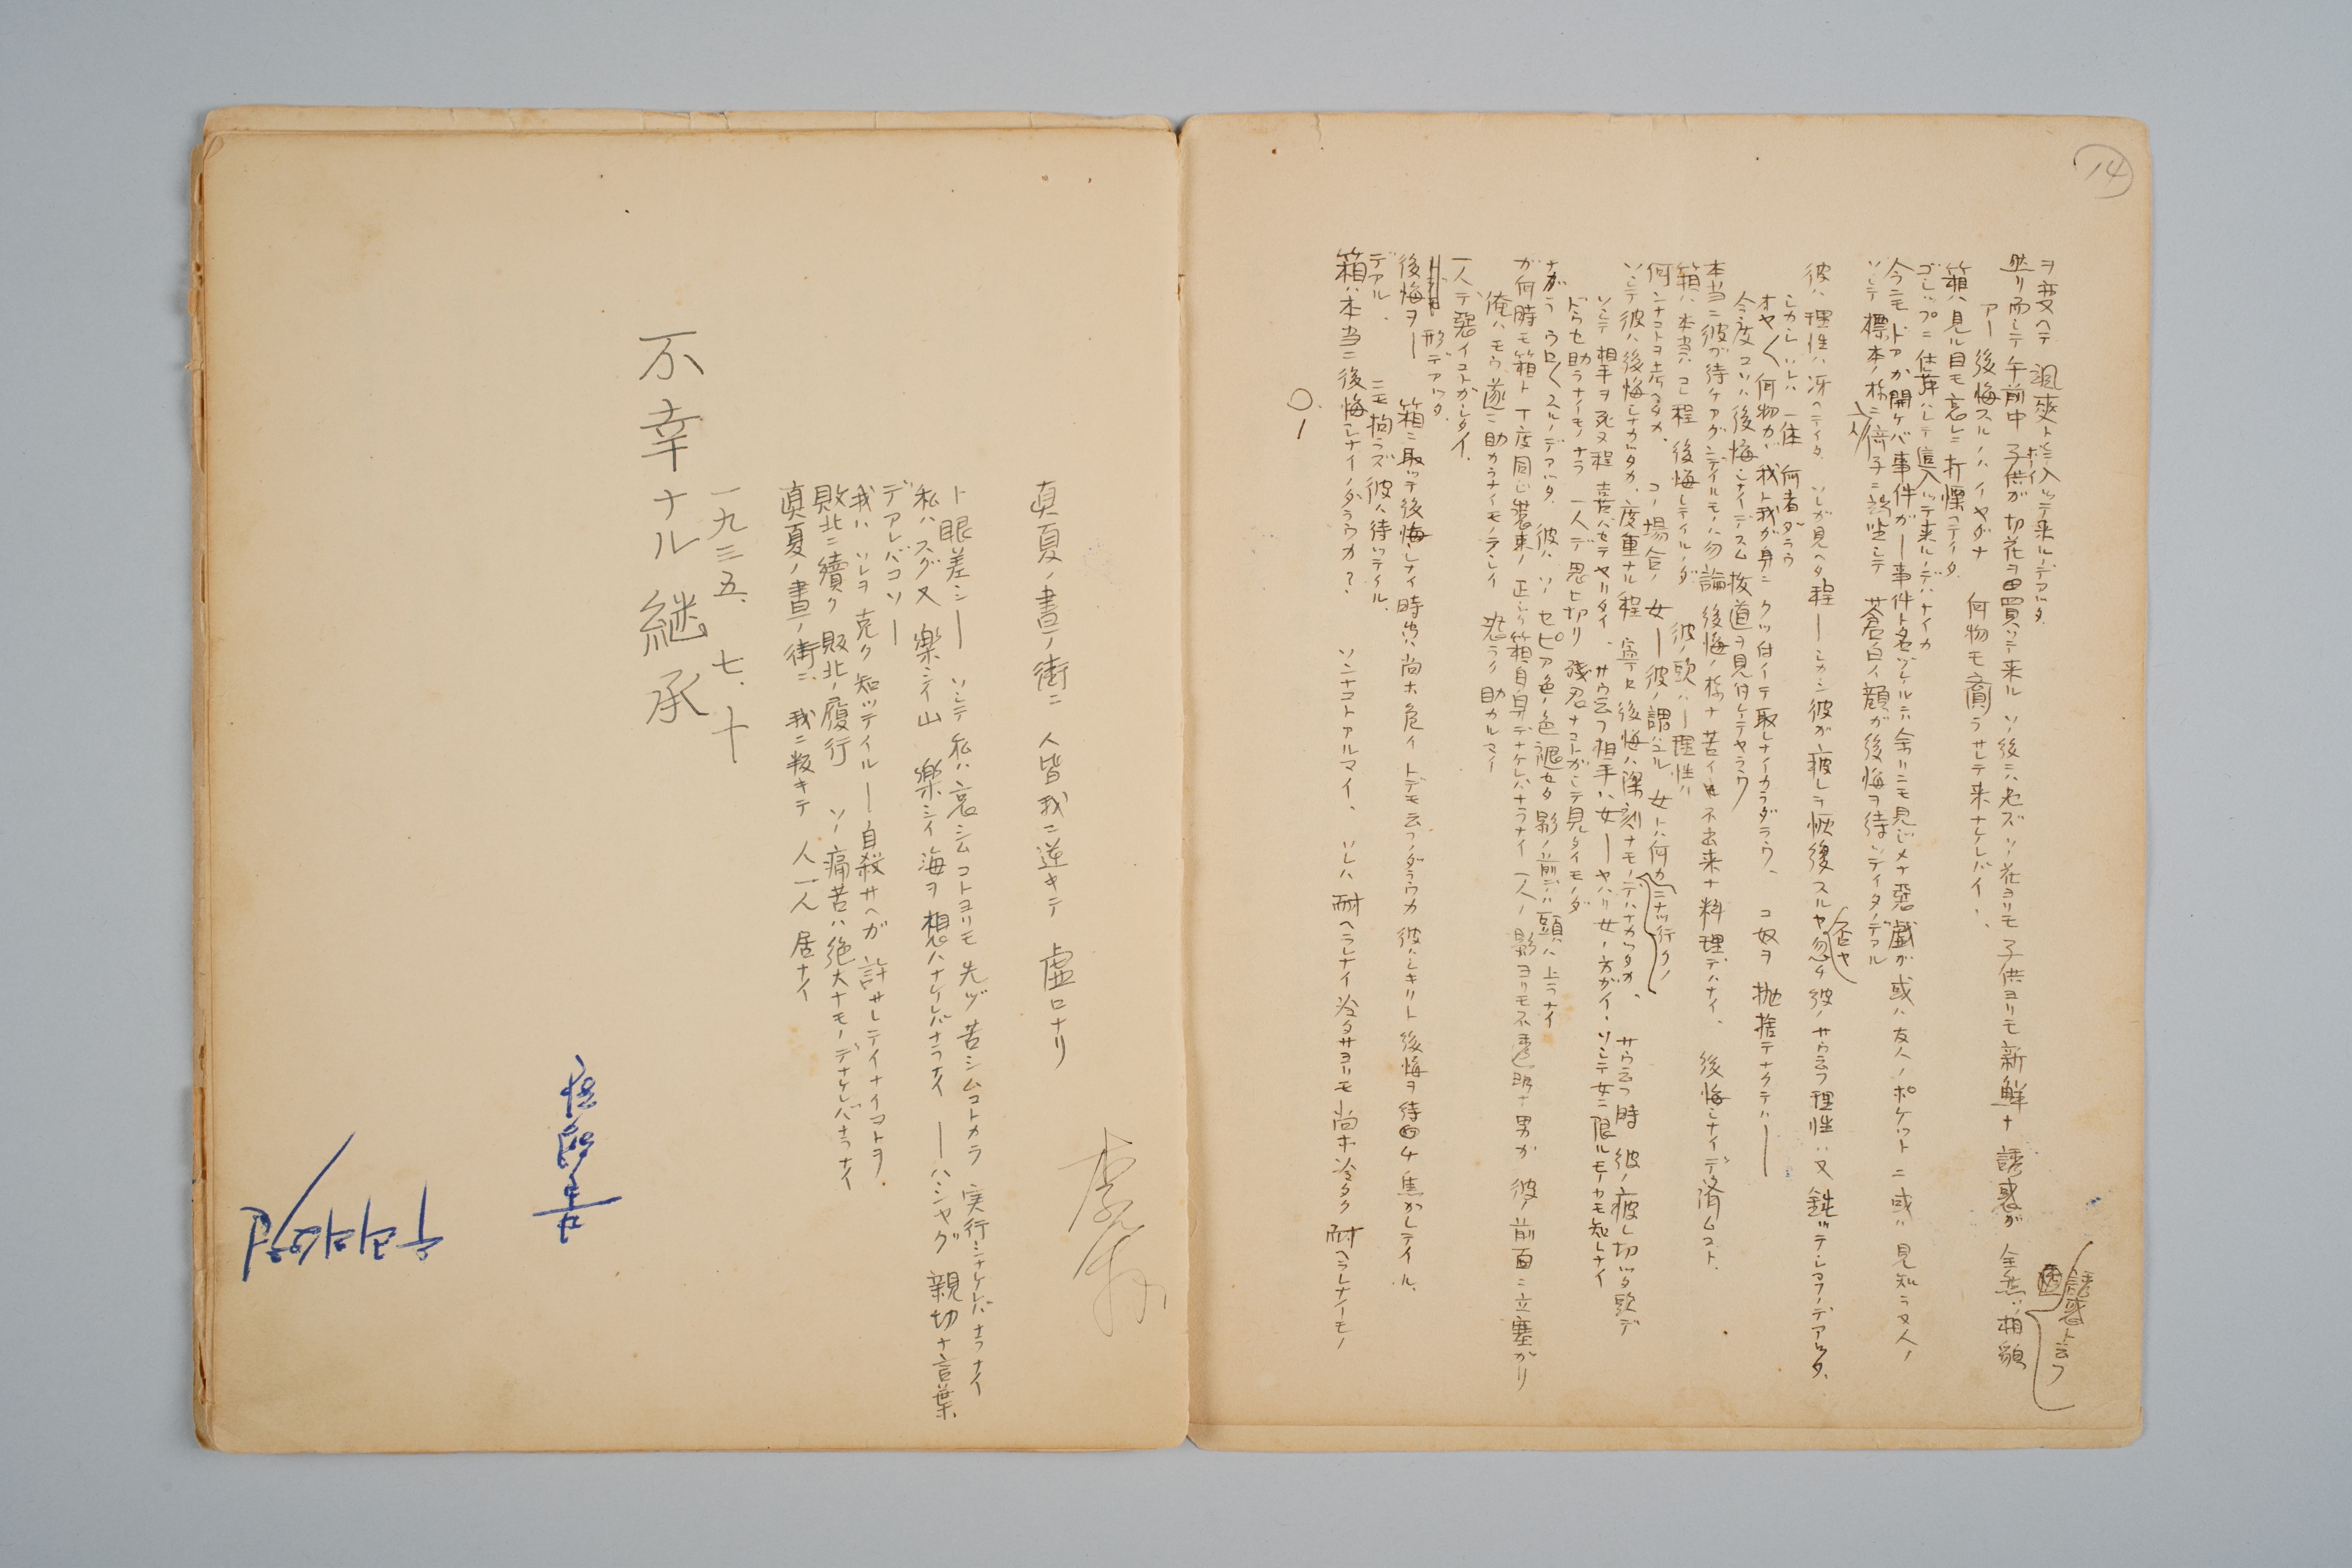 14
ヲ変ヘテ 颯爽ト 入ッテ来ルノデアッタ
ボーイ
誘惑ト云フ
止リ 而シテ 午前中 子供ガ 切花ヲ 買ッテ来ル ソノ後ニハ 必ズ ソノ花ヨリモ 子供ヨリモ 新鮮ナ 誘惑ガ 全然 相貌
アー 後悔スルノハ イヤダナ 何物モ 齎ラサレテ来ナケレバイヽ
箱ハ見ル目モ哀レニ打慄ヘテイタ
今ニモドアガ開ケバ事件ガ— 事件ト名ヅケルニハ余リニモ見ジメナ悪戯ガ或ハ友人ノポケットニ或ハ見知ラヌ人ノ
ゴムップニ仕舞ハレテ這入ッテ来ルノデハナイカ
ソシテ 標本ノ様ニ 倚子ニ 坐シテ 蒼白イ顔ガ 後悔ヲ待ッテイタノデアル
彼ノ理性ハ冴ヘテイタ ソレガ見ヘタ程— シカシ彼ガ疲レヲ恢復スルヤ 忽チ彼ノ サウ云フ理性ハ又 鈍ッテシマフノデアッタ、
否ヤ
シカシ ソレハ 一体 何者ダラウ
オヤ〱何物ガ、我ト我ガ身ニ クッ付イテ取レナイカラダラウ、 コ奴ヲ 抛捨テナクテハ—
今度コソハ 後悔シナイデスム 抜道ヲ見付ケテヤラウ
本当ニ彼ガ待チアグンデイルモノハ勿論 後悔ノ様ナ苦イ 不出来ナ料理デハナイ、 後悔シナイデ済ムコト、
箱ハ 本当ハ コレ程 後悔シテイルノダ 彼ノ頭ハ— 理性ハ
何ンナコトヲ考ヘタカ、 コノ場合ノ 女— 彼ノ謂ハユル 女トハ何カ
ニナッテ行クノ
ソシテ彼ハ後悔シナカッタカ、度重ナル程 寧ロ後悔ハ深刻ナモノデハナカッタカ、 サウ云フ時 彼ノ疲レ切ッタ頭デ
ソシテ 相手ヲ 死ヌ程 喜バセテヤリタイ、 サウ云フ相手ハ女— ヤハリ女ノ方ガイヽ ソシテ女ニ限ルモノカモ知レナイ
ドウセ助ラナイモノナラ 一人デ 思ヒ切リ 残忍ナコトガシテ見タイモノダ
ナガラ ウロ〱スルノデアッタ 彼ハ ソノ セピア色ノ色褪セタ影ノ前デハ 頭ハ上ラナイ
ガ何時モ箱ト丁度同ジ装束ノ 正シク箱自身デナケレバナラナイ一人ノ影ヨリモ不透明ナ男ガ 彼ノ前面ニ立塞ガリ
俺ハモウ遂ニ助カラナイモノラシイ 恐ラク助カルマイ
一人デ悪イコトガシタイ、
形デアッタ
後悔ヲ— 箱ニ取ッテ後悔シナイ時ハ 尚ホ危イトデモ云フノダラウカ 彼ハシキリト 後悔ヲ待チ焦ガレテイル、
ニモ拘ラズ 彼ハ待ッテイル
デアル、
箱ハ本当ニ後悔シナイノダラウカ? ソンナコトアルマイ、 ソレハ 耐ヘラレナイ冷タサヨリモ 尚ホ冷タク 耐ヘラレナイモノ
〇、
李箱
真夏ノ昼ノ街ニ 人皆我ニ逆キテ 虚ロナリ
ト眼差シ— ソシテ私ハ 哀シムコトヨリモ 先ヅ 苦シムコトカラ 実行シナケレバナラナイ
私ハスグ又 楽シイ山 楽シイ海ヲ 想ハナケレバナラナイ —ハシャグ 親切ナ言葉、
デアレバコソ—
我ハ ソレヲ克ク知ッテイル— 自殺サヘガ許サレテイナイコトヲ、
敗北ニ續ク 敗北ノ履行 ソノ痛苦ハ絶大ナモノデナケレバナラナイ
真夏ノ昼ノ街ニ 我ニ叛キテ 人一人 居ナイ
一九三五、七、十
不幸ナル継承